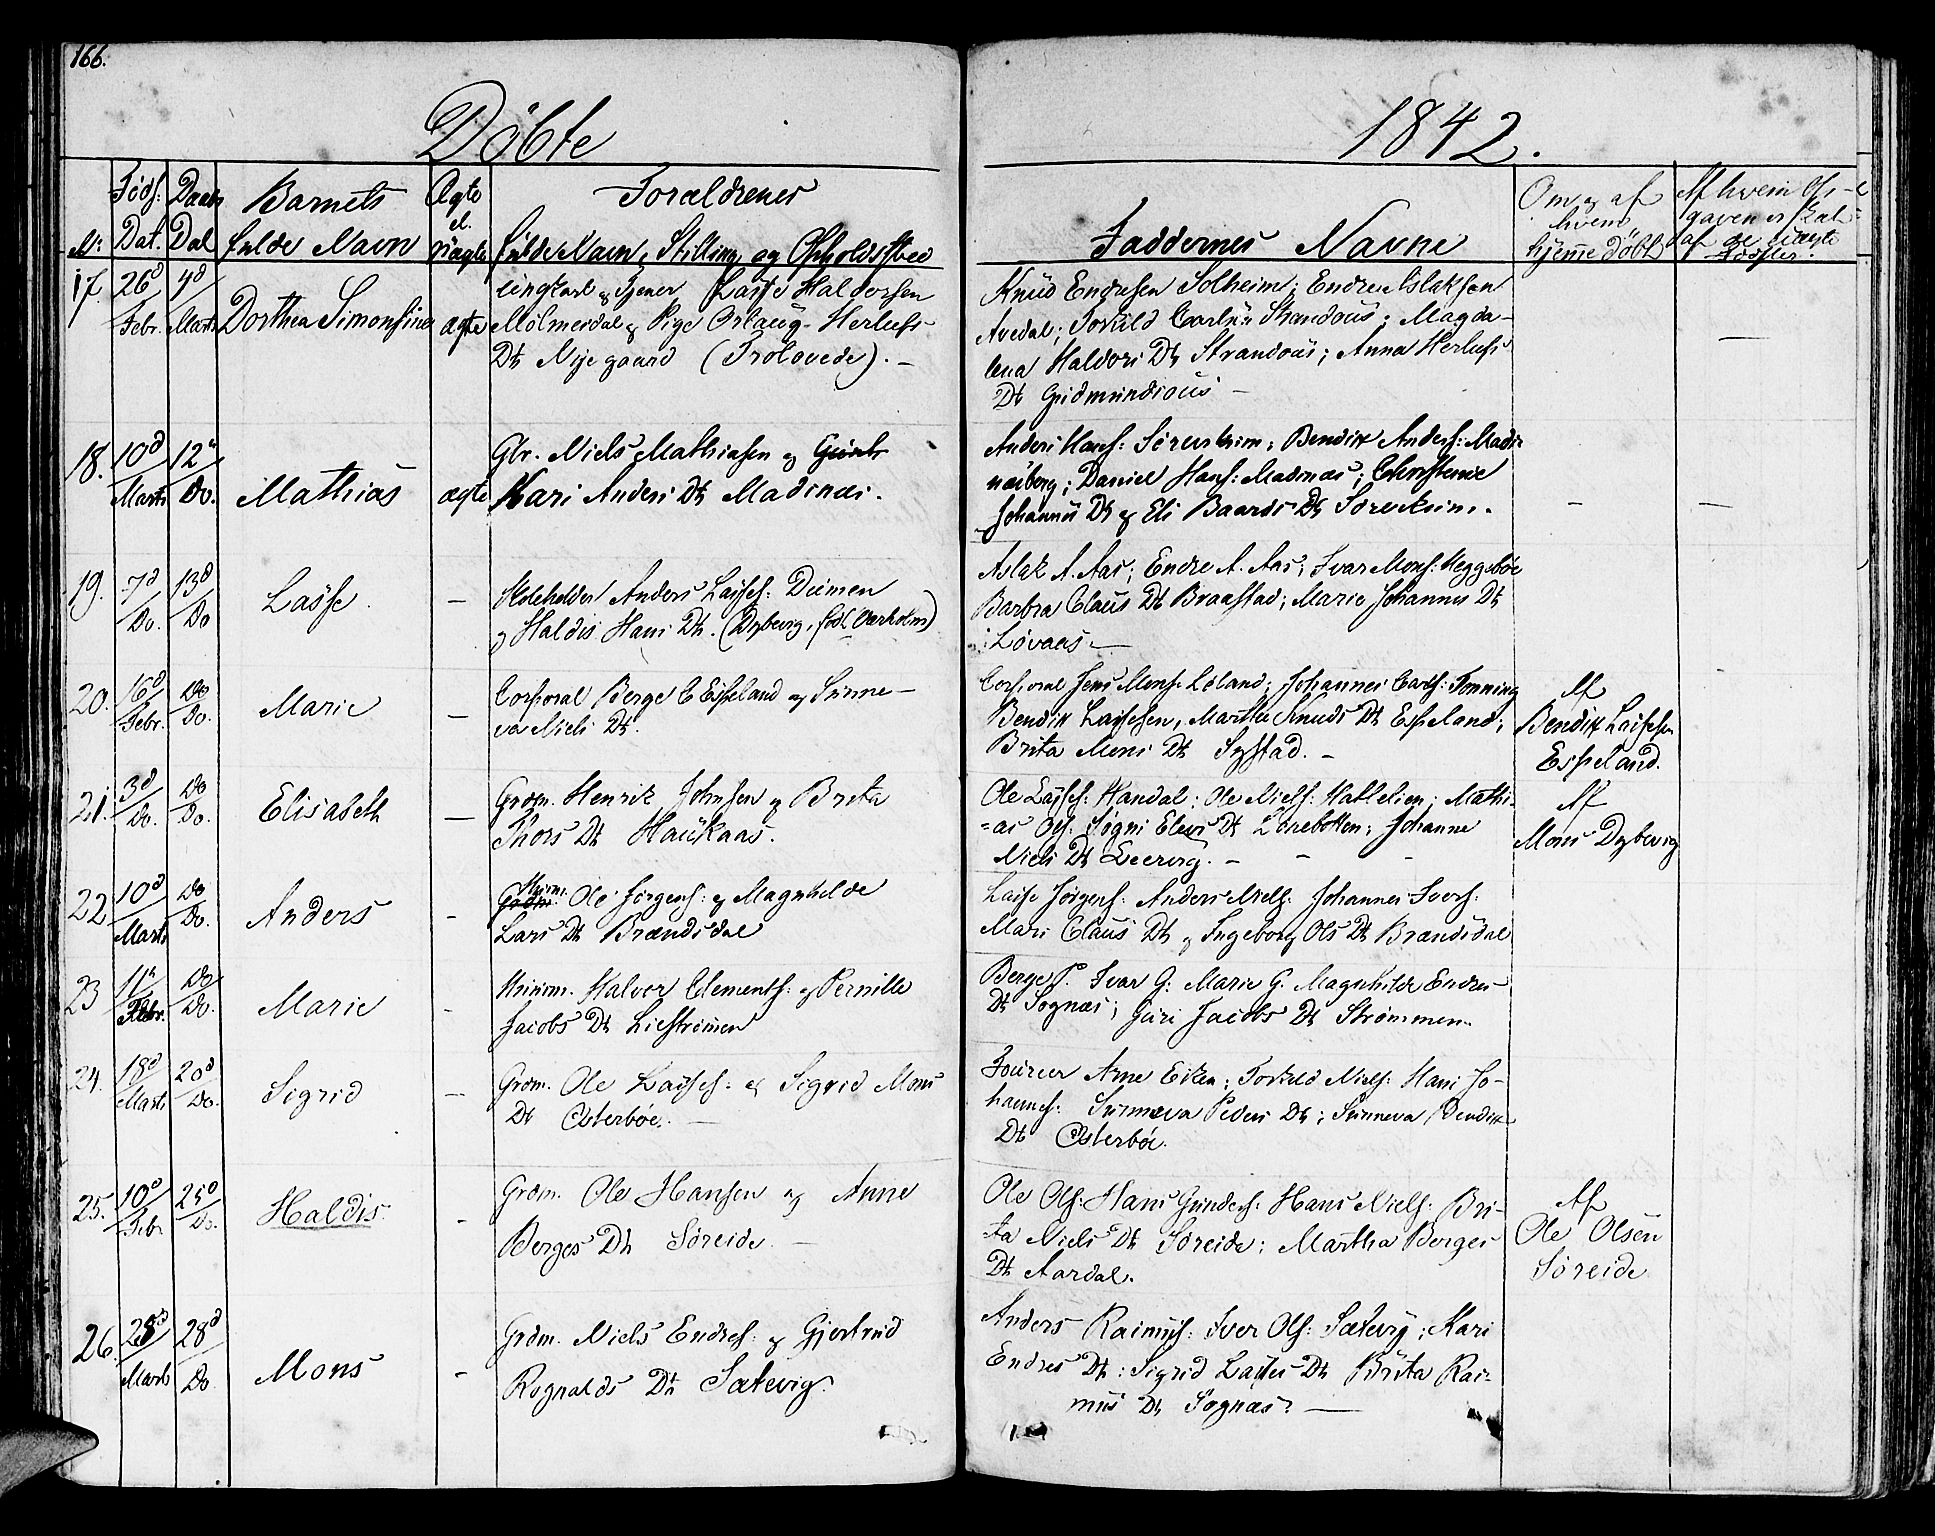 166.
Döbte
1842.
No Föds. Dat. Daabs Dat Barnets fulde Navn Ægte el. Uægte Forældrenes fulde Navn, Stilling og Opholdssted
Faddernes Navne
Om og af hvem hjemme döbt
Af hvem
17. 26d Febr. Marts Dorthea Simonsine ægte Ungkarl og Tjener Lasse Haldorsen
Mølmesdal og Pige Orlaug Herlufs
Dt Nyegaard (Trolovede). –
Knud Endresen Solheim; Endre Aslaksen
Avedal; Torkild Carlsen Strandous; Magda-
lena Haldors Dt Strandous; Anna Herlufs
Dt Gudmundsous –
–
18. 10d Marts 12te Do. Mathias ægte Gbr. Niels Mathiasen og
Kari Anders Dt Madsnæs.
Anders Hans: Søreviken; Bendix Anders: Mads
næsberg; Daniel Hans: Madsnæs; Christense
Johannes Dt og Eli Baards Dt Søreviken.
– –
19. 7d Do. 13d Do Lasse – Skoleholder Anders Lasses: Diemen
og Haldis Hans Dt. (Dybevig, fød Værholm)
Aslak A. Aas; Endre A. Aas; Ivar Mons: Heggebøe
Barbra Claus Dt Braastad; Marie Johannes Dt
Løvaas –
20. 16d Febr. Do Do. Marie – Corporal Berge E Espeland og Sunne-
va Niels Dt.
Corporal Jens Mons Løland; Johannes Carls: Tonning
Bendix Lassesen, Marthe Knuds Dt Espeland;
Brita Mons Dt Systad. –
Af
Bendix Lassesen
Espeland.
21. 3d Do. Do Do. Elisabeth – Grdm. Henrik Johnsen og Brita
Thors Dt Haukaas.
Ole Lasses: Handal; Ole Niels: Hattelien; Mathi-
=as Ols: Søgni Elevs Dt Leirebotten; Johanne
Niels Dt Leervig. – – –
Af
Mons Dybevig
22 10d Marts Do Do. Anders – Huusm. Ole Jørgens: og Magnhilde
Lars Dt Brændsdal
Lasse Jørgens: Anders Niels: Johannes Ivers:
Mari Claus Dt og Ingeborg Ols Dt Brændsdal
23 11te Febr. Do Do. Marie – Huusm. Halvor Clements: og Pernille
Jacobs Dt Liestrømen
Berge P. Ivar G: Marie G. Magnhilde Endres
Dt Sognæs; Guri Jacobs Dt Strømmen.
24. 18d Marts 20d Do. Sigrid – Grdm. Ole Lasses: og Sigrid Mons
Dt Østerbøe. –
Fourer Arne Eiken; Torkild Niels: Hans Jo-
hannes: Sunneva Peders Dt; Sunneva Bendix
Dt Østerbøe.
25. 10d Febr 25d Do. Haldis – Grdm. Ole Hansen og Anne
Berges Dt Søreide. –
Ole Ols: Hans Gunders: Hans Niels: Bri-
ta Niels Dt Søreide; Martha Berges
Dt Aardal.
Af
Ole Olsen
Søreide
26. Marts 28d Do Mons – Grdm. Niels Endres: og Gjertrud
Rognalds Dt Sætevig.
Anders Rasmus: Iver Ols: Sætevig; Kari
Endres Dt: Sigrid Lasses Dt Brita Ras-
mus Dt Sognæs. –